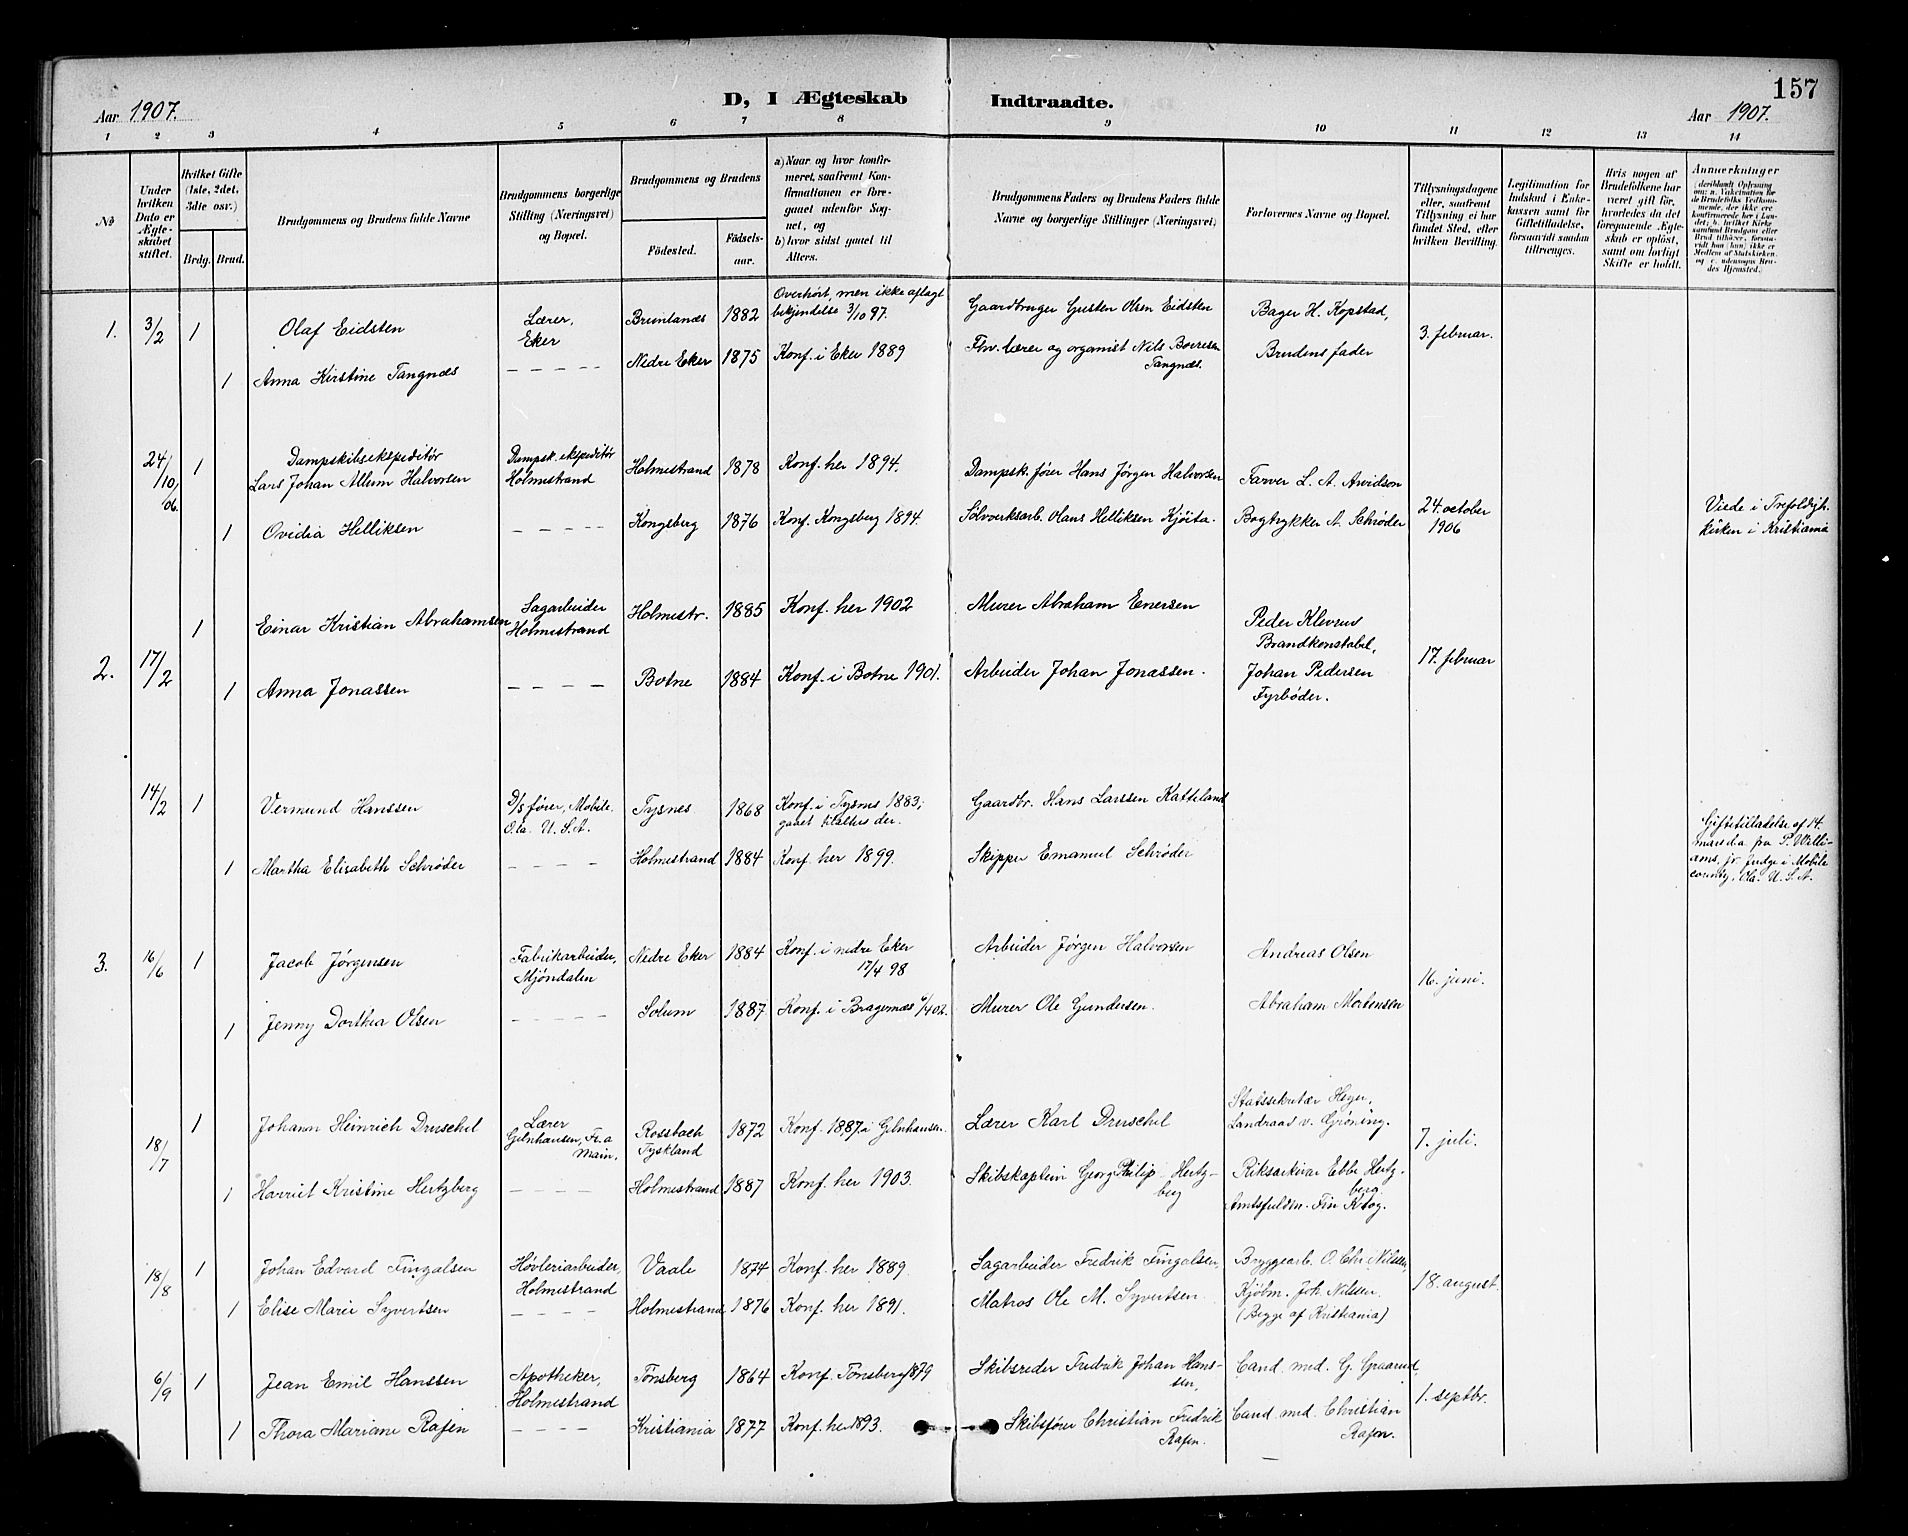 157
Aar 1907.
D, I Ægteskab Indtraadte.
Aar 1907.
1 2 3 4 5 6 7 8 9 10 11 12 13 14
№
Under hvilken Dato er Ægteskabet stiftet.
Hvilket Gifte (1ste, 2det, 3die osv.)
Brdg. Brud.
Brudgommens og Brudens fulde Navne
Brudgommens borgerlige Stilling (Næringsvei) og Bopæl.
Brudgommens og Brudens
Födested.
Födselsaar.
a) Naar og hvor konfirmeret, saafremt Konfirmationen er foregaaet udenfor Sognet, og
b) hvor sidst gaaet til Alters.
Brudgommens Faders og Brudens Faders fulde Navne og borgerlige Stillinger (Næringsvei)
Forlovernes Navne og Bopæl.
Tillysningsdagene eller, saafremt Tillysning ei har fundet Sted, efter hvilken Bevilling.
Legitimation for Indskud i Enkekassen samt for Giftetilladelse, forsaavidt saadan tiltrænges.
Hvis nogen af Brudefolkene har været gift før, hvorledes da det foregaaende Ægteskab er oplöst, samt om lovligt Skifte er holdt.
Anmærkninger
1. 3/2 1 Olaf Eidsten Lærer, Eker Brunlanæs 1882 Overhørt, men ikke aflagt bekjendelse 3/10 97. Gaardbruger Gusten Olsen Eidsten Bager H. Kopstad, 3. februar.
1 Anna Kirstine Tangnæs – – – – – Nedre Eker 1875 Konf. i Eker 1889 Fhv. lærer og organist Nils Borresen Tangnæs. Brudens fader
24/10 06. 1 Dampskibsekspeditør Lars Johan Allum Halvorsen Dampsk. ekspeditør Holmestrand Holmestrand 1878 Konf. her 1894. Dampsk. fører Hans Jørgen Halvorsen Farver L. A. Arvidson 24. october 1906 Viede i Trefoldigh. kirken i Kristiania
1 Ovidia Helliksen – – – – Kongsberg 1876 Konf. Kongsberg 1894. Sølvverksarb. Olans Helliksen Kjöita. Bogtrykker A. Schrøder
2. 17/2 1 Einar Kristian Abrahamsen Sagarbeider Holmestrand Holmestr. 1885 Konf. her 1902 Murer Abraham Enersen Peder Kleven Brandkonstabel, 17. februar
1 Anna Jonassen – – – – Botne 1884 Konf. i Botne 1901. Arbeider Johan Jonassen. Johan Pedersen Fyrbøder.
14/2 1 Vermund Hanssen D/S fører, Mobile. Ola. U.S.A. Tysnes 1868 Konf. i Tysnes 1883; gaaet tilalters der. Gaardbr. Hans Larssen Katteland
Giftetilladelse af 14. marsda. fra P. Williams, jr. Judge i Mobile county, Ola. U.S.A.
1 Martha Elisabeth Schrøder – – – – Holmestrand 1884 Konf. her 1899. Skipper Emanuel Schrøder
3. 16/6 1 Jacob Jørgensen Fabrikarbeider, Mjöndalen Nedre Eker 1884 Konf. i nedre Eker 17/4 98 Arbeider Jørgen Halvorsen Andreas Olsen 16. juni.
1 Jenny Dorthea Olsen – – – – – Solum 1887 Konf. i Bragernæs 6/4 02. Murer Ole Gundersen. Abraham Mortensen
18/7 1 Johann Heinrich Druschel Lærer Gelnhausen, Fr. a Main. Rossbach Tyskland 1872 Konf. 1887 i Gelnhausen. Lærer Karl Druschel Statssekretær Heyer, Landraad v. Grøning. 7. juli.
1 Harriet Kristine Hertzberg – – – – Holmestrand 1887 Konf. her 1903. Skibskaptein Georg Philip Hertzberg Riksarkivar Ebbe Hertzberg Amtsfuldm. Fin Krog.
18/8 1 Johan Edvard Fingalsen Høvleriarbeider, Holmestrand Vaale 1874 Konf. her 1889. Sagarbeider Fredrik Fingalsen, Bryggearb. O. Chr. Nilsen, 18. august.
1 Elise Marie Syvertsen – – – – Holmestrand 1876 Konf. her 1891. Matros Ole M. Syvertsen. Kjøbm. Joh. Nilsen. (Begge af Kristiania)
6/9 1 Jean Emil Hanssen Apotheker, Holmestrand Tönsberg 1864 Konf. Tönsberg 1879 Skibsreder Fredrik Johan Hanssen, Cand. med. G. Graarud, 1. septbr.
1 Thora Mariane Rafen – – – – Kristiania 1877 Konf. her 1893. Skibsfører Christian Fredrik Rafen. Cand. med. Christian Rafen.